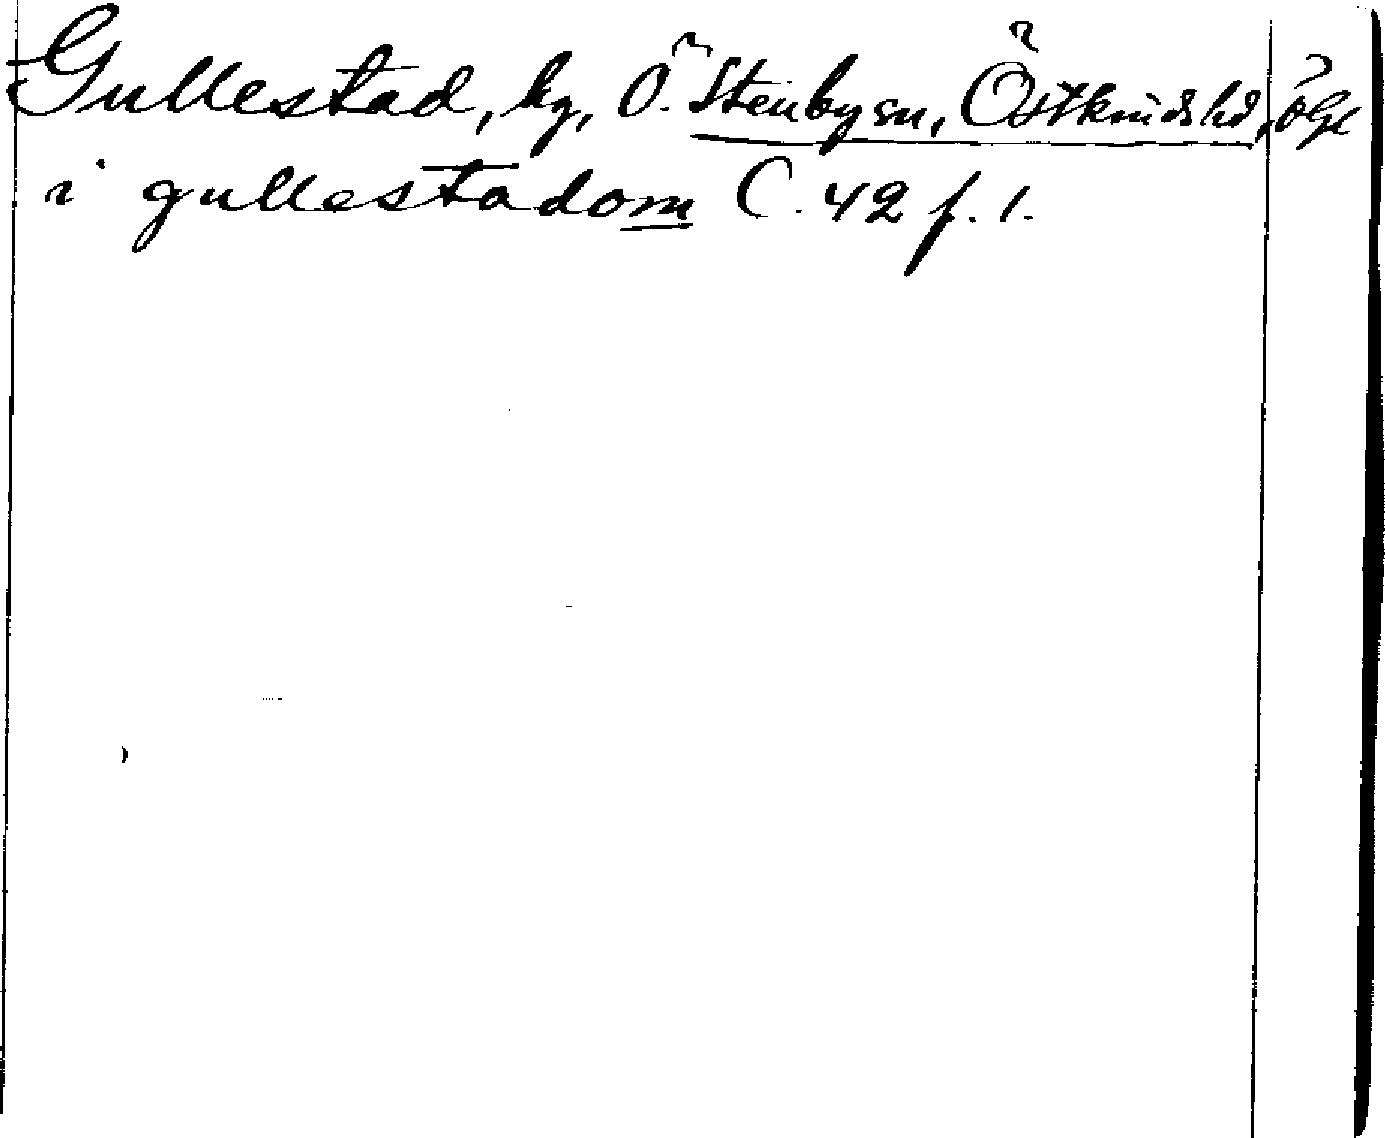 Gullestad, hg, Ö. Stenby sn, Östkinds hd, ögl
i gullestadom C. 42 f. 1.